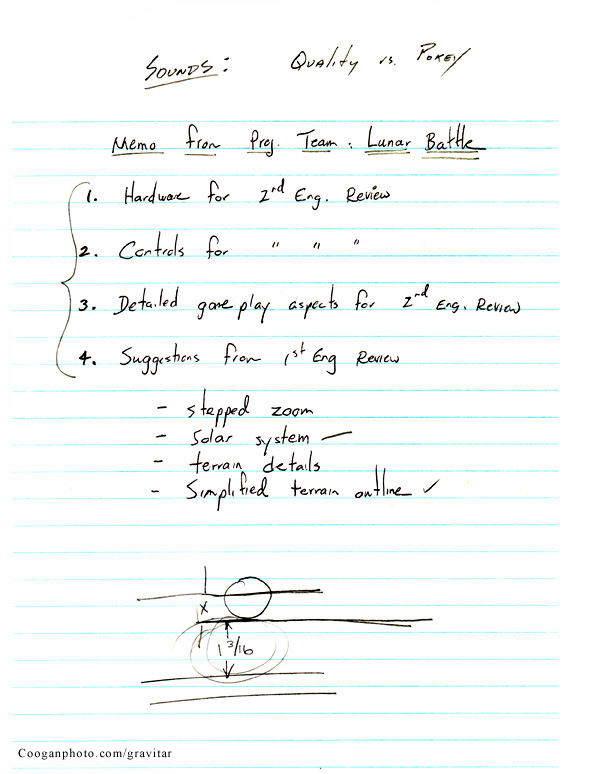 SOUNDS: QUALITY vs. POKEY
Memo from Proj. Team: Lunar Battle
1. Hardware for 2nd Eng. Review
2. Controls for " " "
3. Detailed game play aspects for 2nd Eng. Review
4. Suggestions from 1st Eng Review
- stepped zoom
- Solar system —
- terrain details
- Simplified terrain outline ✓
X
1 3/16
Cooganphoto.com/gravitar